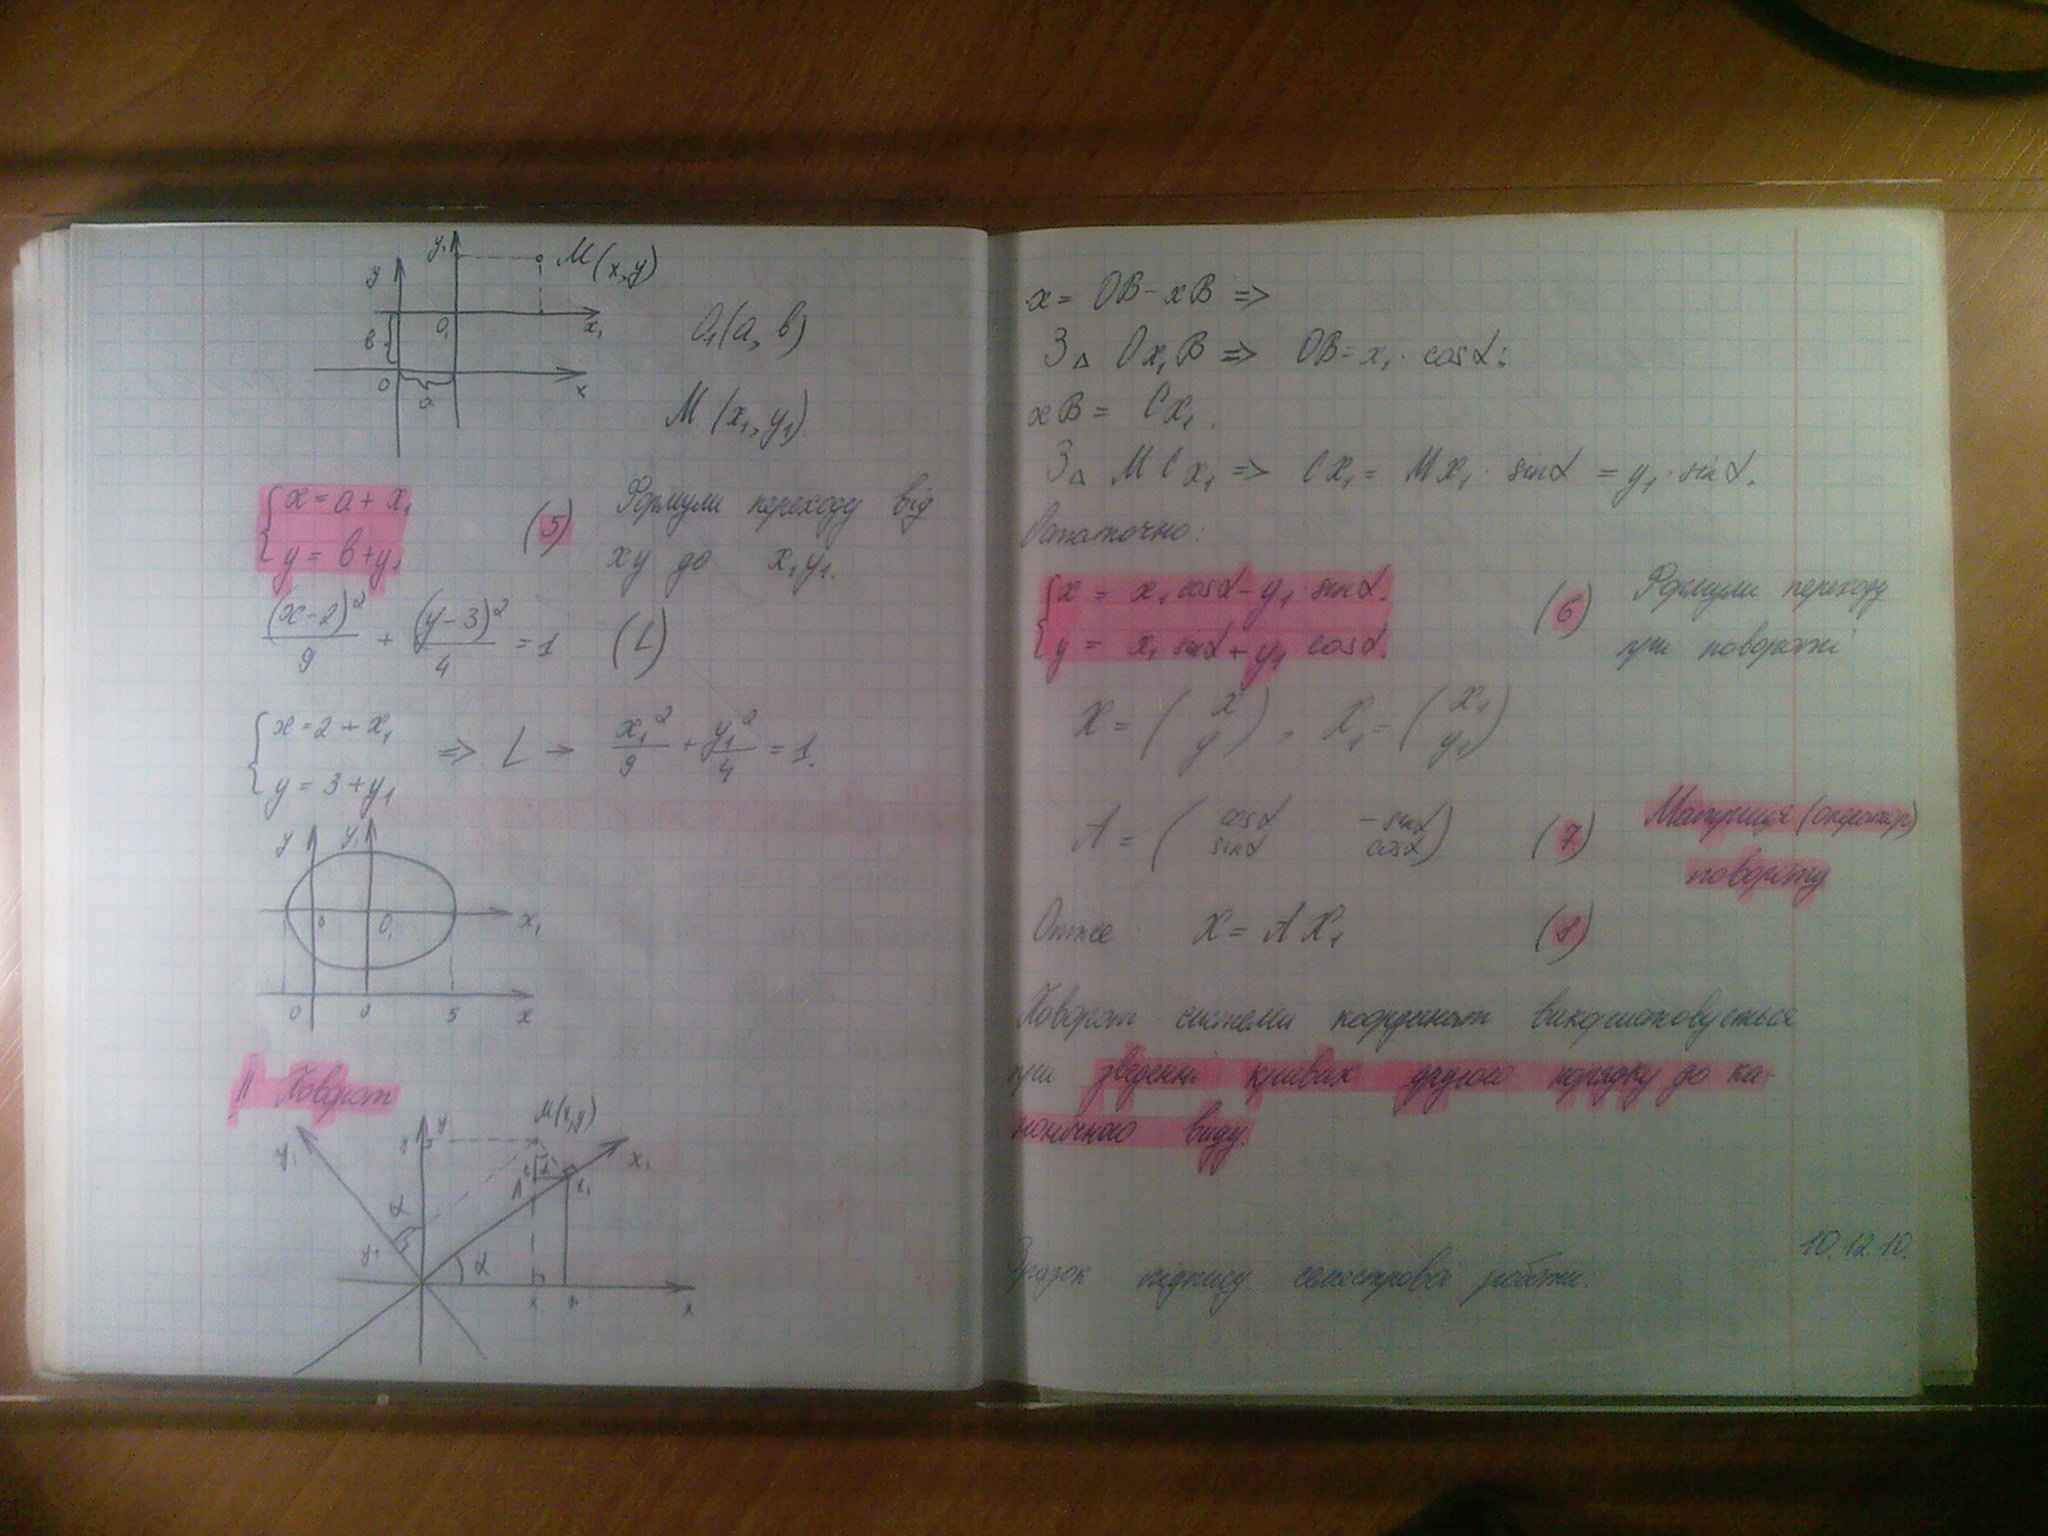 y y₁ M(x,y)
в O₁ x₁
O a x
O₁(a, в)
M(x₁, y₁).
{x = a + x₁
{y = в + y₁
(5) Формули переходу від
xy до x₁y₁.
(x-2)²/9 + (y-3)²/4 = 1 (L)
{x = 2 + x₁
{y = 3 + y₁
=> L → x₁²/9 + y₁²/4 = 1.
y y₁
O₁ x₁
O 5 x
II Поворот
M(x,y)
y₁ y x₁
α A x₁
y₁ α
x x
x = OB - xB =>
З △ Ox₁B => OB = x₁ · cosα;
xB = Cx₁.
З △ MCx₁ => Cx₁ = Mx₁ · sinα = y₁ · sinα.
Остаточно:
{x = x₁ cosα - y₁ · sinα.
{y = x₁ sinα + y₁ cosα.
(6) Формули переходу
при повороті
X = (x y), X₁ = (x₁ y₁)
A = (cosα -sinα
sinα cosα)
(7) Матриця (оператор)
повороту
Отже X = AX₁ (8)
Поворот системи координат використовується
при зведенні кривих другого порядку до ка-
нонічного виду.
10.12.10.
Зразок підпису семестрової роботи.